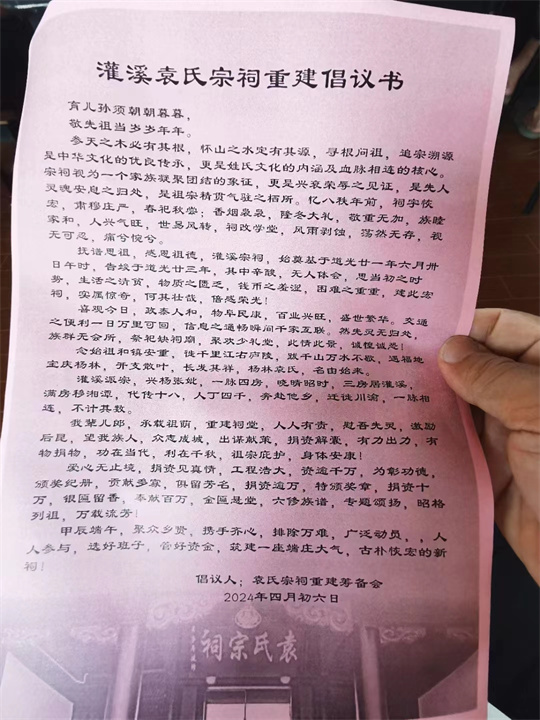 灌溪袁氏宗祠重建倡议书
育儿孙须朝朝暮暮，
敬先祖当岁岁年年。
参天之木必有其根，怀山之水定有其源，寻根问祖，追宗溯源
是中华文化的优良传承，更是姓氏文化的内涵及血脉相连的核心。
宗祠视为一个家族凝聚团结的象征，更是兴衰荣辱之见证，是先人
灵魂安息之归处，是祖宗精贯气驻之栖所。忆八秩年前，祠宇恢
宏，肃穆庄严，春祀秋尝；香烟袅袅，隆冬大礼，敬重无加，族睦
家和，人兴气旺，世易风转，祠改学堂，风雨剥蚀，荡然无存，视
无可忍，痛兮惋兮。
抚谱思祖，感恩祖德，灌溪宗祠，始奠基于道光廿一年六月卅
日午时，告竣于道光廿三年，其中辛酸，无人体会，思当初之时
势，生活之清贫，物质之匮乏，钱币之羞涩，困难之重重，建此宏
祠，实属惊奇，何其壮哉，倍感荣光！
喜观今日，政泰人和，物阜民康，百业兴旺，盛世繁华。交通
之便利一日万里可回，信息之通畅瞬间千家互联。然先灵无归处，
族群无会所，祭祀缺祠庙，聚欢少礼堂，此情此景，诚惶诚恐！
念始祖和镇安重，徙千里江右庐陵，跋千山万水不歇，遇福地
宝庆杨林，开支散叶，长发其祥，杨林袁氏，名由始来。
灌溪派宗，兴杨张妣，一脉四房，晚晴昭时，三房居灌溪，
满房移湘潭，代传十八，人丁四千，奔赴他乡，迁徙川渝，一脉相
连，不计其数。
我辈儿郎，承载祖荫，重建祠堂，人人有责，慰吾先灵，激励
后昆，望我族人，众志成城，出谋献策，捐资解囊，有力出力，有
物捐物，功在当代，利在千秋，祖宗庇护，身体安康！
爱心无止境，捐资见真情，工程浩大，资逾千万，为彰功德，
颁奖纪册，贡献多寡，俱留芳名，捐资逾万，特颁奖章，捐资十
万，银匾留香，奉献百万，金匾悬堂，六修族谱，专题颂扬，昭格
列祖，万载流芳！
甲辰端午，聚众乡贤，携手齐心，排除万难，广泛动员，，人
人参与，选好班子，管好资金，筑建一座端庄大气，古朴恢宏的新
祠！
倡议人；袁氏宗祠重建筹备会
2024年四月初六日
袁氏宗祠